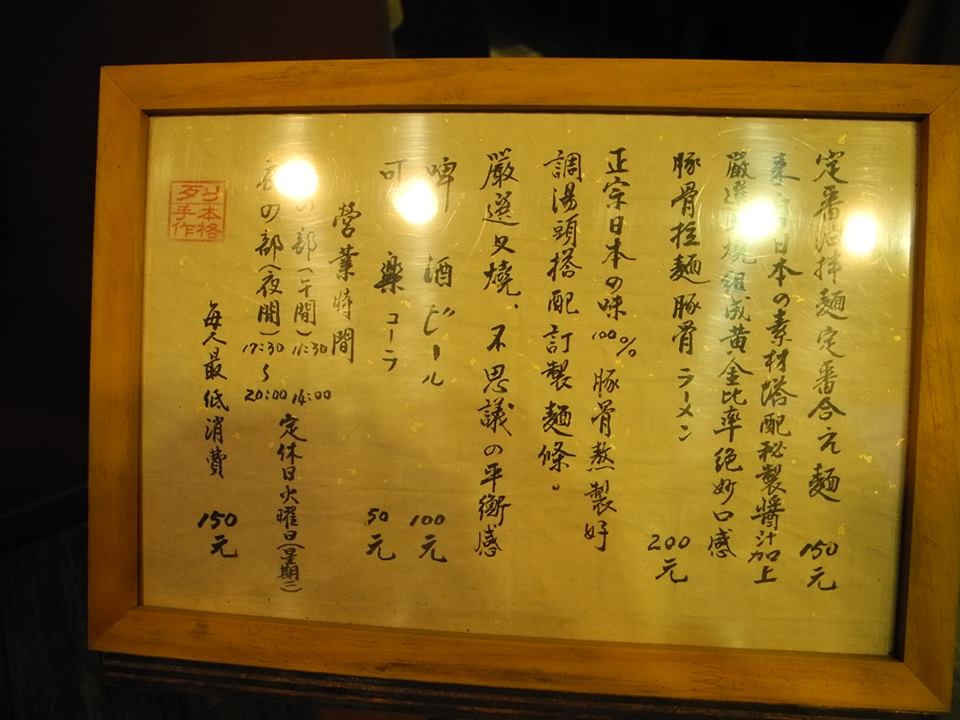 定番油拌麵 定番合え麵 150元
来自日本の素材塔配秘製醬汁加上
嚴選叉燒組成黃金比率絕妙口感
豚骨拉麵 豚骨ラーメン 200元
正宗日本の味100%豚骨熬製好
調湯頭搭配訂製麵條。
嚴選叉燒、不思議の平衡感
啤酒ビール 100元
可樂コーラ 50元
營業時間
の部(午間)11:30 14:00
夜の部(夜間)17:30~20:00
定休日火曜日(星期二)
每人最低消費 150元
本格
手作